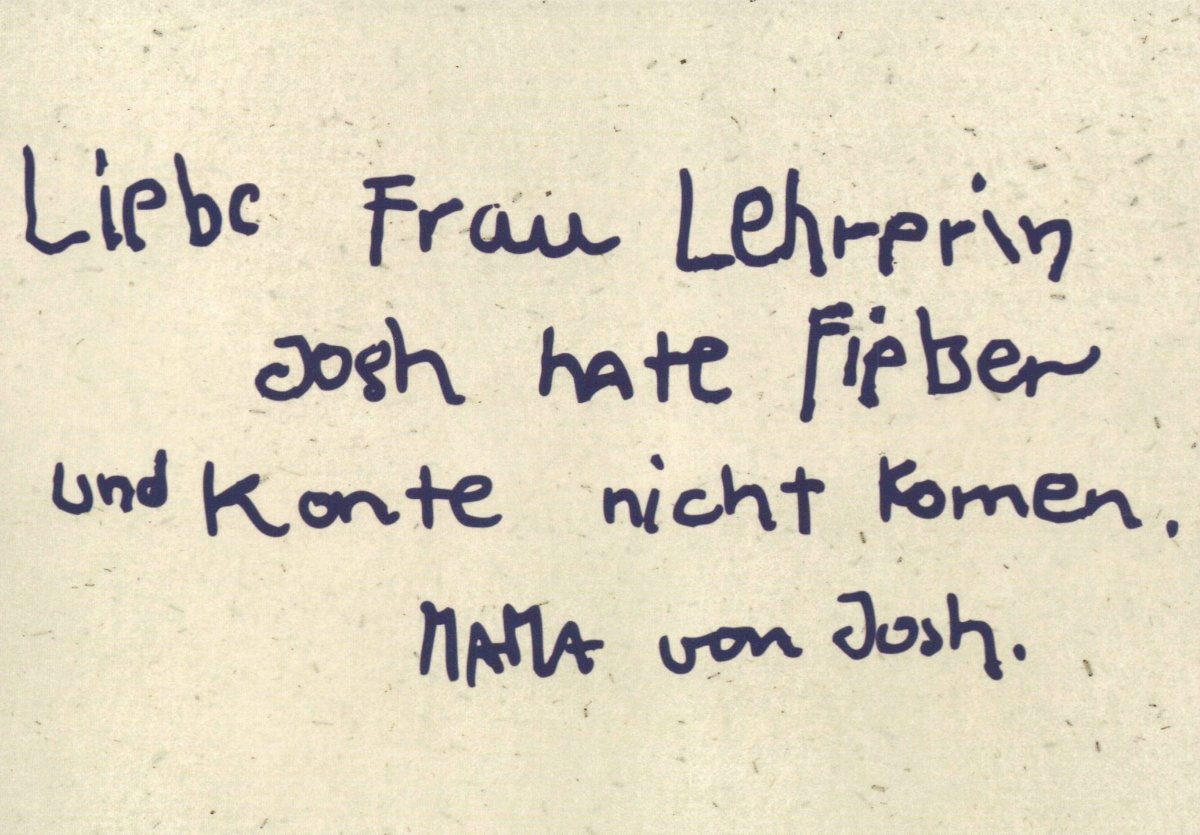 Liebe Frau Lehrerin
Josh hate Fieber
und konte nicht komen.
MAMA von Josh.